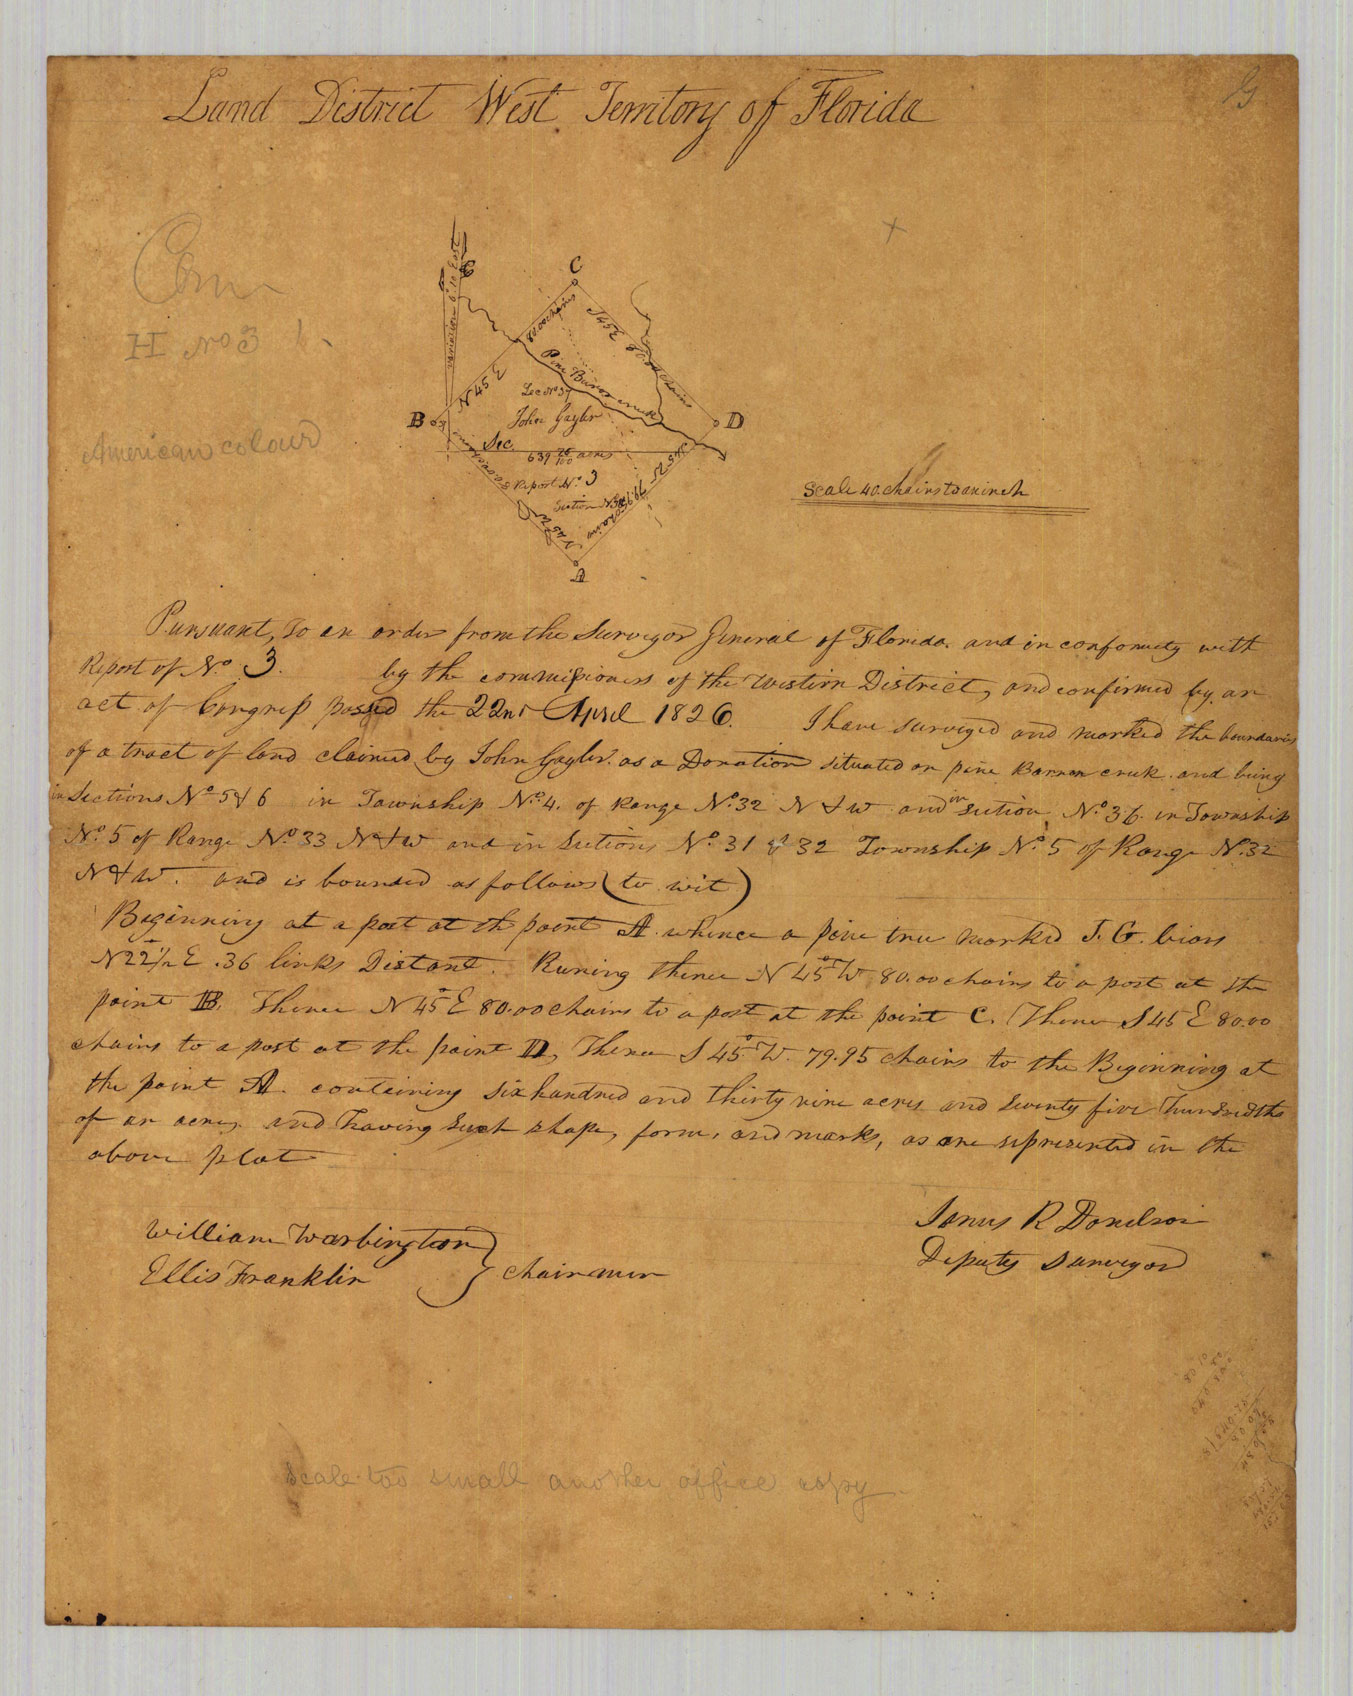 Land District West Territory of Florida
G
Com
H No 3
American colour
variation 6° 10 East
C
B
D
A
N 45 E
80.00 chains
S 45 E 80.00 chains
Pine Barren creek
Sec No 37
John Gayler
Sec.
639 75/100 acres
Report No. 3
Section No 38
N 45 W
80.00 chains
S 45 W
79.95 chains
Scale 40 chains to an inch
Pursuant, To an order from the Surveyor General of Florida. and in conformity with
Report of No. 3. by the commissioners of the Western District, and confirmed by an
act of Congress passed the 22nd April 1826. I have surveyed and marked the boundaries
of a tract of land claimed by John Gayler. as a Donation situated on pine Barren creek. and being
in Sections No 5 & 6 in Township No. 4. of Range No. 32 N & W and in section No. 36. in Township
No. 5 of Range No 33 N & W and in Sections No. 31 & 32 Township No. 5 of Range No. 32
N & W. and is bounded as follows (to wit)
Beginning at a post at the point A. whence a pine tree marked J. G. bears
N 22 1/2 E .36 links Distant. Runing thence N 45° W 80.00 chains to a post at the
point B. Thence N 45° E 80.00 chains to a post at the point C. Thence S 45 E 80.00
chains to a post at the point D, Thence S 45° W. 79.95 chains to the Beginning at
the point A. containing six hundred and thirty nine acres and seventy five hundredths
of an acre, and having such shape, form, and marks, as are represented in the
above plat
William Warbington
Ellis Franklin
chainmen
James R Donelson
Deputy Surveyor
Scale too small another office copy